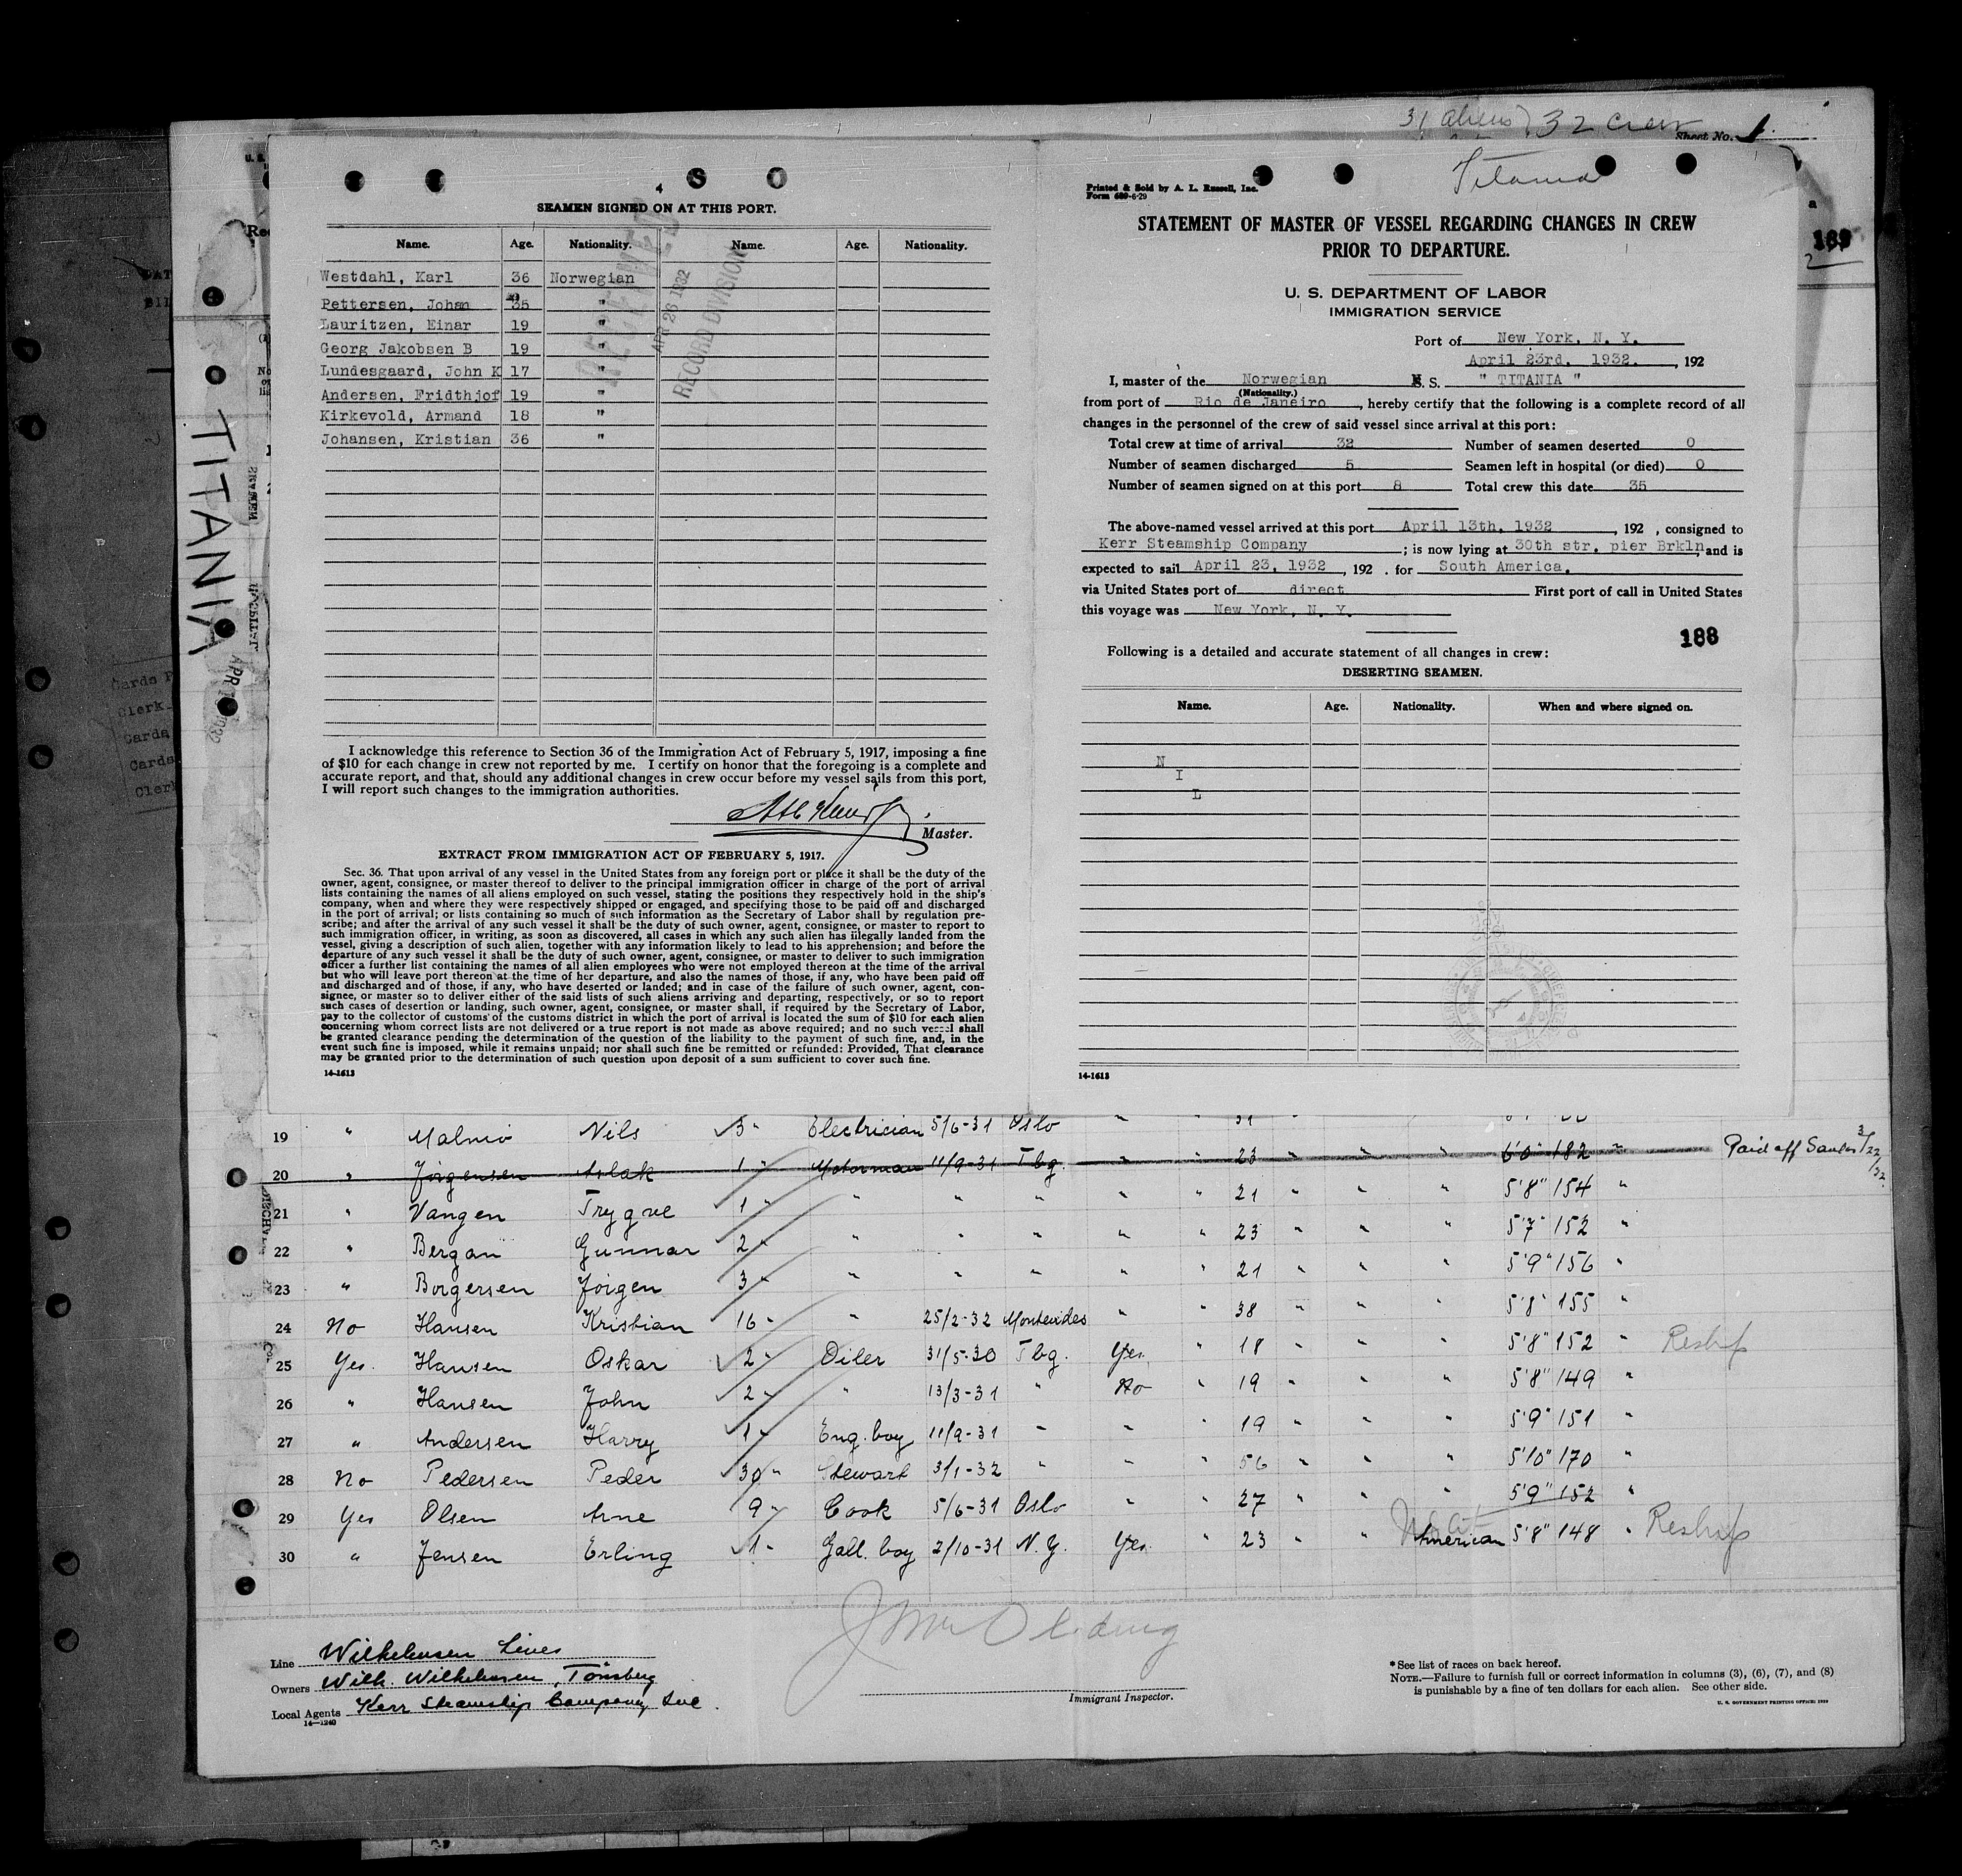 31 aliens 32 crew
Sheet No. 1
Titania
189
TITANIA
4
SEAMEN SIGNED ON AT THIS PORT.
Name. Age. Nationality. Name. Age. Nationality.
Westdahl, Karl 36 Norwegian
Pettersen, Johan 35 "
Lauritzen, Einar 19 "
Georg Jakobsen B 19 "
Lundesgaard, John K 17 "
Andersen, Fridthjof 19 "
Kirkevold, Armand 18 "
Johansen, Kristian 36 "
RECEIVED
APR 26 1932
RECORD DIVISION
I acknowledge this reference to Section 36 of the Immigration Act of February 5, 1917, imposing a fine
of $10 for each change in crew not reported by me. I certify on honor that the foregoing is a complete and
accurate report, and that, should any additional changes in crew occur before my vessel sails from this port,
I will report such changes to the immigration authorities.
Master.
EXTRACT FROM IMMIGRATION ACT OF FEBRUARY 5, 1917.
Sec. 36. That upon arrival of any vessel in the United States from any foreign port or place it shall be the duty of the
owner, agent, consignee, or master thereof to deliver to the principal immigration officer in charge of the port of arrival
lists containing the names of all aliens employed on such vessel, stating the positions they respectively hold in the ship's
company, when and where they were respectively shipped or engaged, and specifying those to be paid off and discharged
in the port of arrival; or lists containing so much of such information as the Secretary of Labor shall by regulation pre-
scribe; and after the arrival of any such vessel it shall be the duty of such owner, agent, consignee, or master to report to
such immigration officer, in writing, as soon as discovered, all cases in which any such alien has illegally landed from the
vessel, giving a description of such alien, together with any information likely to lead to his apprehension; and before the
departure of any such vessel it shall be the duty of such owner, agent, consignee, or master to deliver to such immigration
officer a further list containing the names of all alien employees who were not employed thereon at the time of the arrival
but who will leave port thereon at the time of her departure, and also the names of those, if any, who have been paid off
and discharged and of those, if any, who have deserted or landed; and in case of the failure of such owner, agent, con-
signee, or master so to deliver either of the said lists of such aliens arriving and departing, respectively, or so to report
such cases of desertion or landing, such owner, agent, consignee, or master shall, if required by the Secretary of Labor,
pay to the collector of customs of the customs district in which the port of arrival is located the sum of $10 for each alien
concerning whom correct lists are not delivered or a true report is not made as above required; and no such vessel shall
be granted clearance pending the determination of the question of the liability to the payment of such fine, and, in the
event such fine is imposed, while it remains unpaid; nor shall such fine be remitted or refunded: Provided, That clearance
may be granted prior to the determination of such question upon deposit of a sum sufficient to cover such fine.
14-1613
Printed & Sold by A. L. Russell, Inc.
Form 689-6-29
STATEMENT OF MASTER OF VESSEL REGARDING CHANGES IN CREW
PRIOR TO DEPARTURE.
U. S. DEPARTMENT OF LABOR
IMMIGRATION SERVICE
Port of New York, N. Y.
April 23rd, 1932. , 192
I, master of the Norwegian S. S. " TITANIA "
(Nationality.)
from port of Rio de Janeiro, hereby certify that the following is a complete record of all
changes in the personnel of the crew of said vessel since arrival at this port:
Total crew at time of arrival 32 Number of seamen deserted 0
Number of seamen discharged 5 Seamen left in hospital (or died) 0
Number of seamen signed on at this port 8 Total crew this date 35
The above-named vessel arrived at this port April 13th, 1932 , 192 , consigned to
Kerr Steamship Company ; is now lying at 30th str. pier Brkln, and is
expected to sail April 23, 1932 , 192 . for South America.
via United States port of direct First port of call in United States
this voyage was New York, N. Y.
188
Following is a detailed and accurate statement of all changes in crew:
DESERTING SEAMEN.
Name. Age. Nationality. When and where signed on.
N
I
L
14-1613
19 " Malmö Nils 3 " Electrician 5/6-31 Oslo " " 31 "
20 " Jörgensen Aslak 1 " Motorman 11/9-31 Tbg. " " 23 " " " 6'0" 182 " Paid off Santos 3/22/32
21 " Vangen Trygve 1 " " " " " " 21 " " " 5'8" 154 "
22 " Bergan Gunnar 2 " " " " " " 23 " " " 5'7" 152 "
23 " Borgersen Jörgen 3 " " " " " " 21 " " " 5'9" 156 "
24 No Hansen Kristian 16 " " 25/2-32 Montevideo " " 38 " " " 5'8" 155 "
25 Yes. Hansen Oskar 2 " Oiler 31/5-30 Tbg. Yes. " 18 " " " 5'8" 152 " Reship
26 " Hansen John 2 " " 13/3-31 " No " 19 " " " 5'8" 149 "
27 " Andersen Harry 1 " Eng. boy 11/9-31 " " " 19 " " " 5'9" 151 "
28 No Pedersen Peder 30 " Stewart 3/1-32 " " " 56 " " " 5'10" 170 "
29 Yes Olsen Arne 9 " Cook 5/6-31 Oslo " " 27 " " " 5'9" 152 "
30 " Jensen Erling 1 " Gall. boy 2/10-31 N.Y. Yes. " 23 " " American 5'8" 148 " Reship
Line Wilhelmsen Lines
Owners Wilh. Wilhelmsen, Tönsberg
Local Agents Kerr Steamship Company Inc.
14-1240
Immigrant Inspector.
* See list of races on back hereof.
NOTE.—Failure to furnish full or correct information in columns (3), (6), (7), and (8)
is punishable by a fine of ten dollars for each alien. See other side.
U. S. GOVERNMENT PRINTING OFFICE: 1930